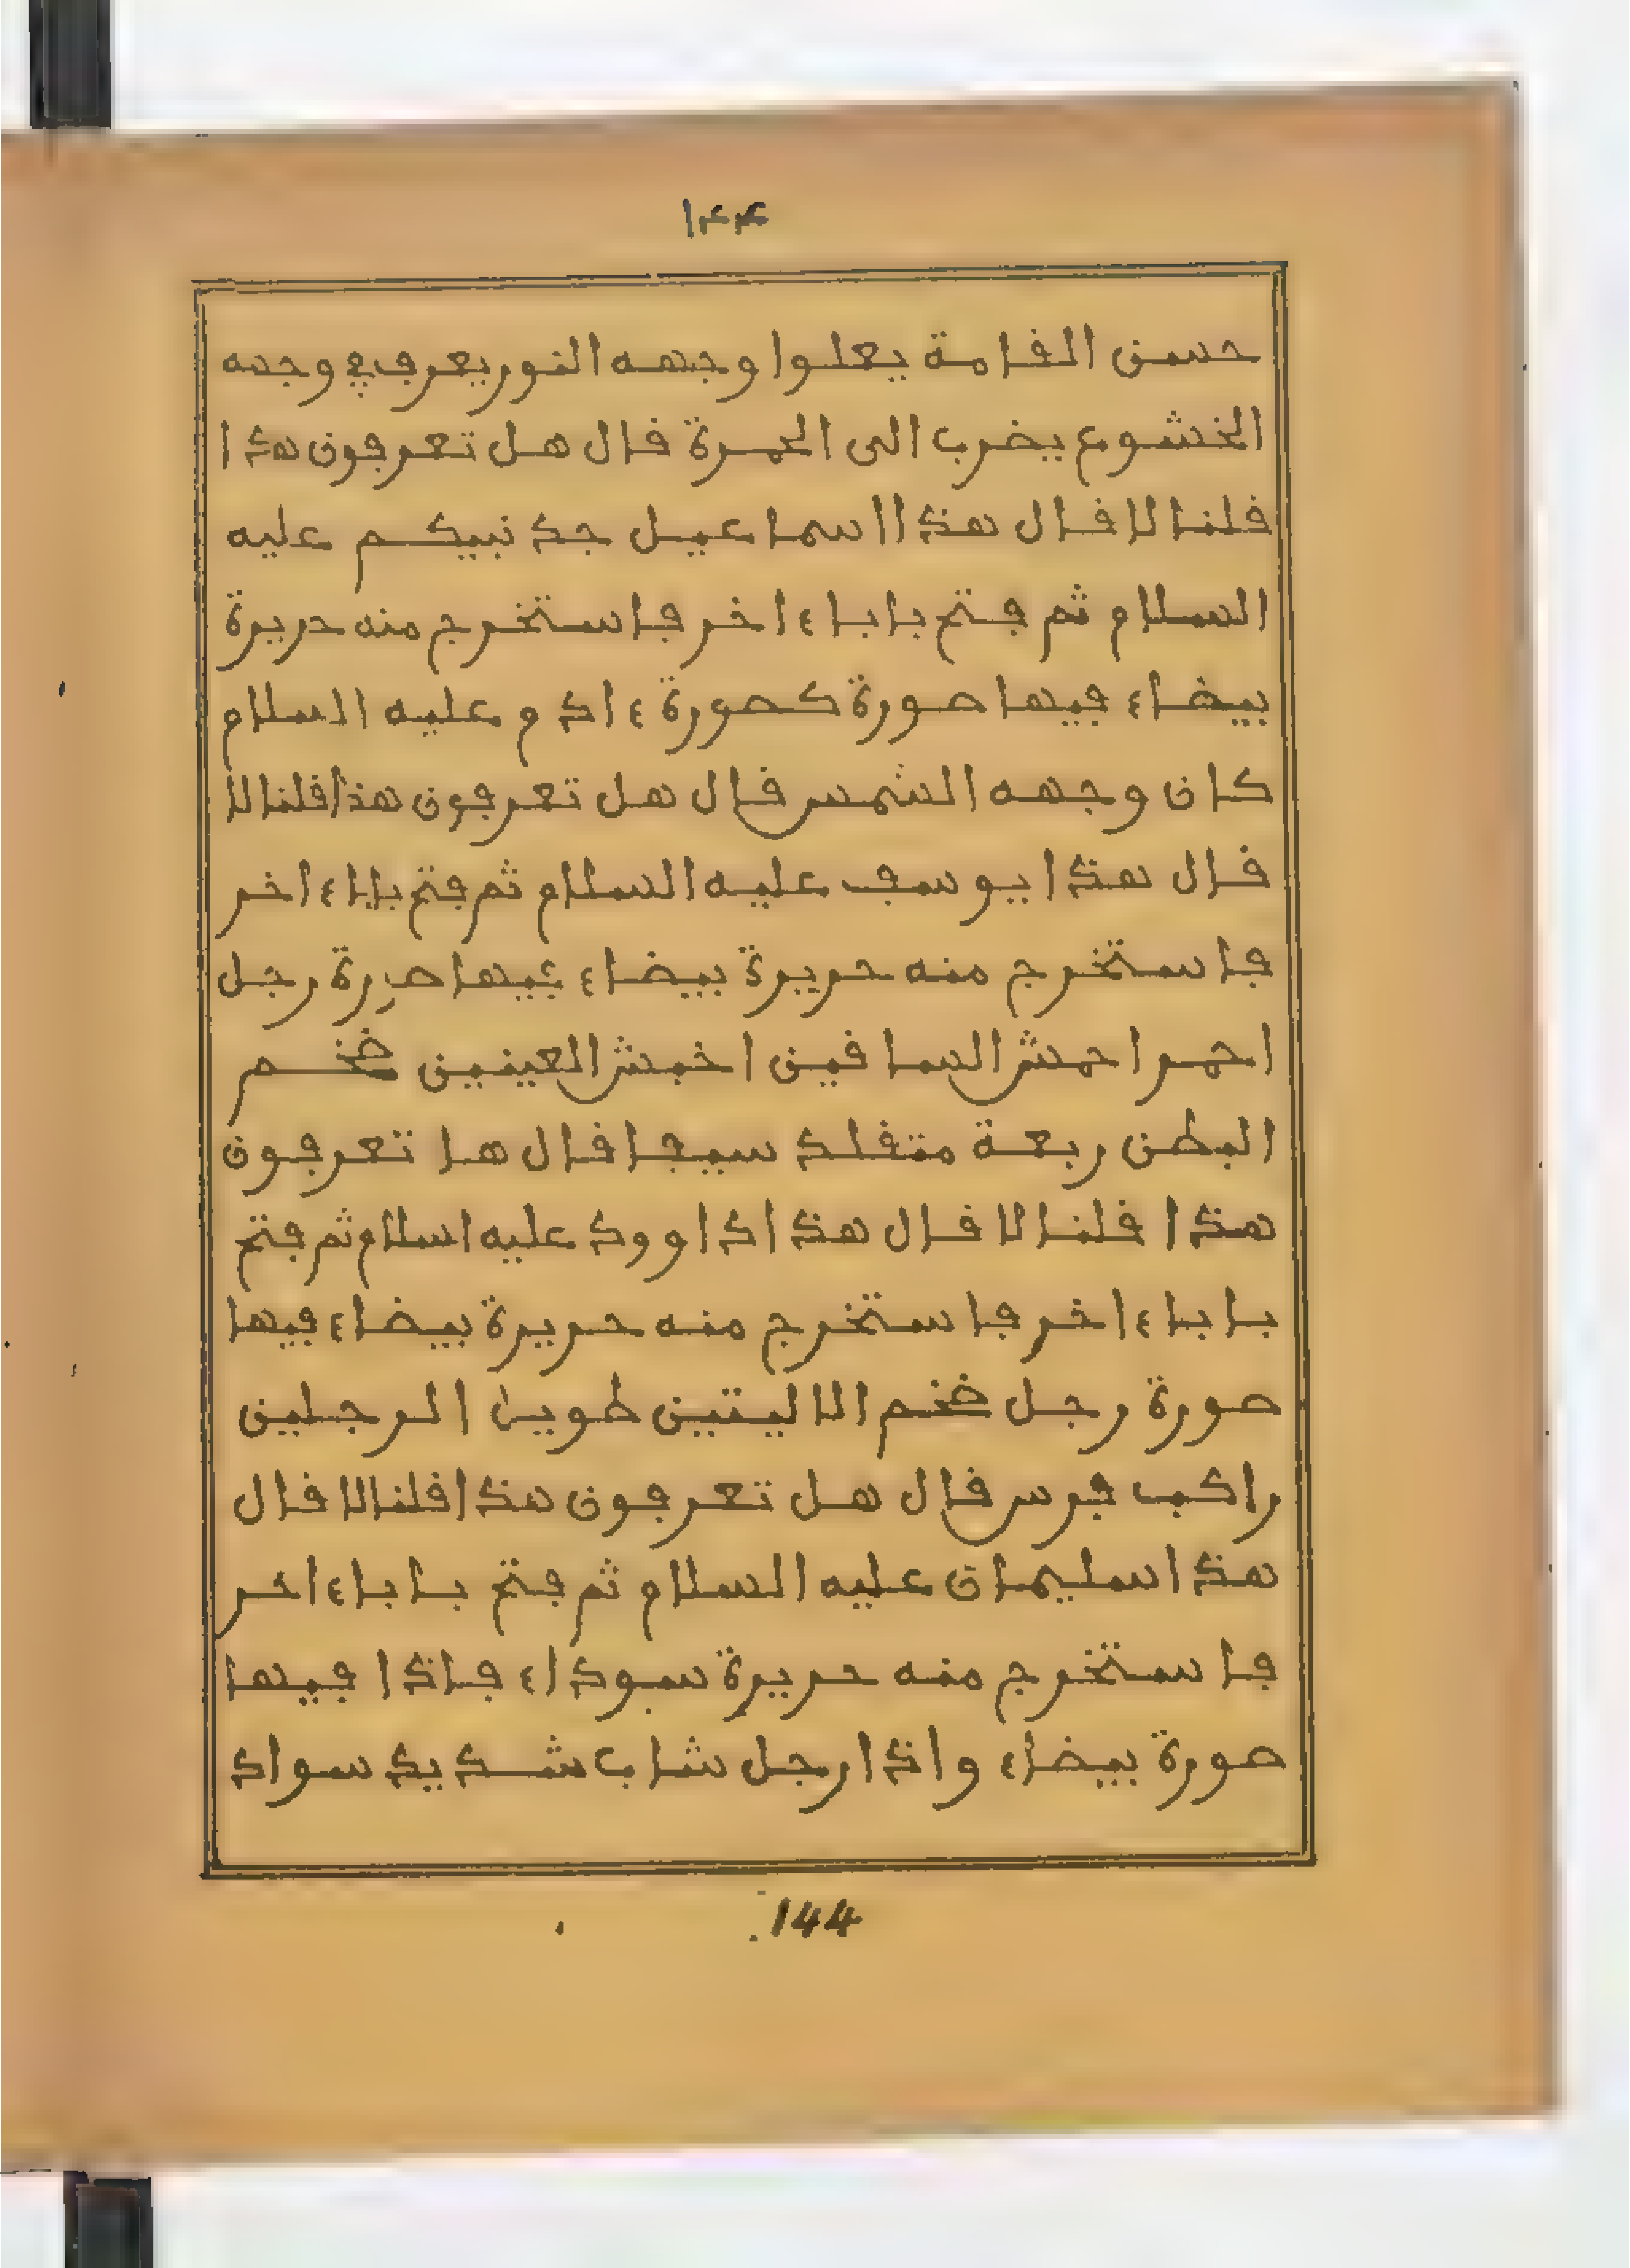 ١٤٤
حسن القامة يعلوا وجهه النور يعرف في وجهه
الخشوع يضرب الى الحمرة قال هل تعرفون هذا
قلنا لا قال هذا اسماعيل جد نبيكم عليه
السلام ثم فتح بابا ءاخر فاستخرج منه حريرة
بيضاء فيها صورة كصورة ءادم عليه السلام
كان وجهه الشمس قال هل تعرفون هذا قلنا لا
قال هذا يوسف عليه السلام ثم فتح بابا ءاخر
فاستخرج منه حريرة بيضاء فيها صورة رجل
احمر احمش الساقين اخبش العينين ضخم
البطن ربعة متقلد سيفا قال ها تعرفون
هذا قلنا لا قال هذا داوود عليه اسلام ثم فتح
بابا ءاخر فاستخرج منه حريرة بيضاء فيها
صورة رجل ضخم الاليتين طويل الرجلين
راكب فرس قال هل تعرفون هذا قلنا لا قال
هذا سليمان عليه السلام ثم فتح بابا ءاخر
فاستخرج منه حريرة سوداء فاذا فيها
صورة بيضاء واذا رجل شاب شديد سواد
144